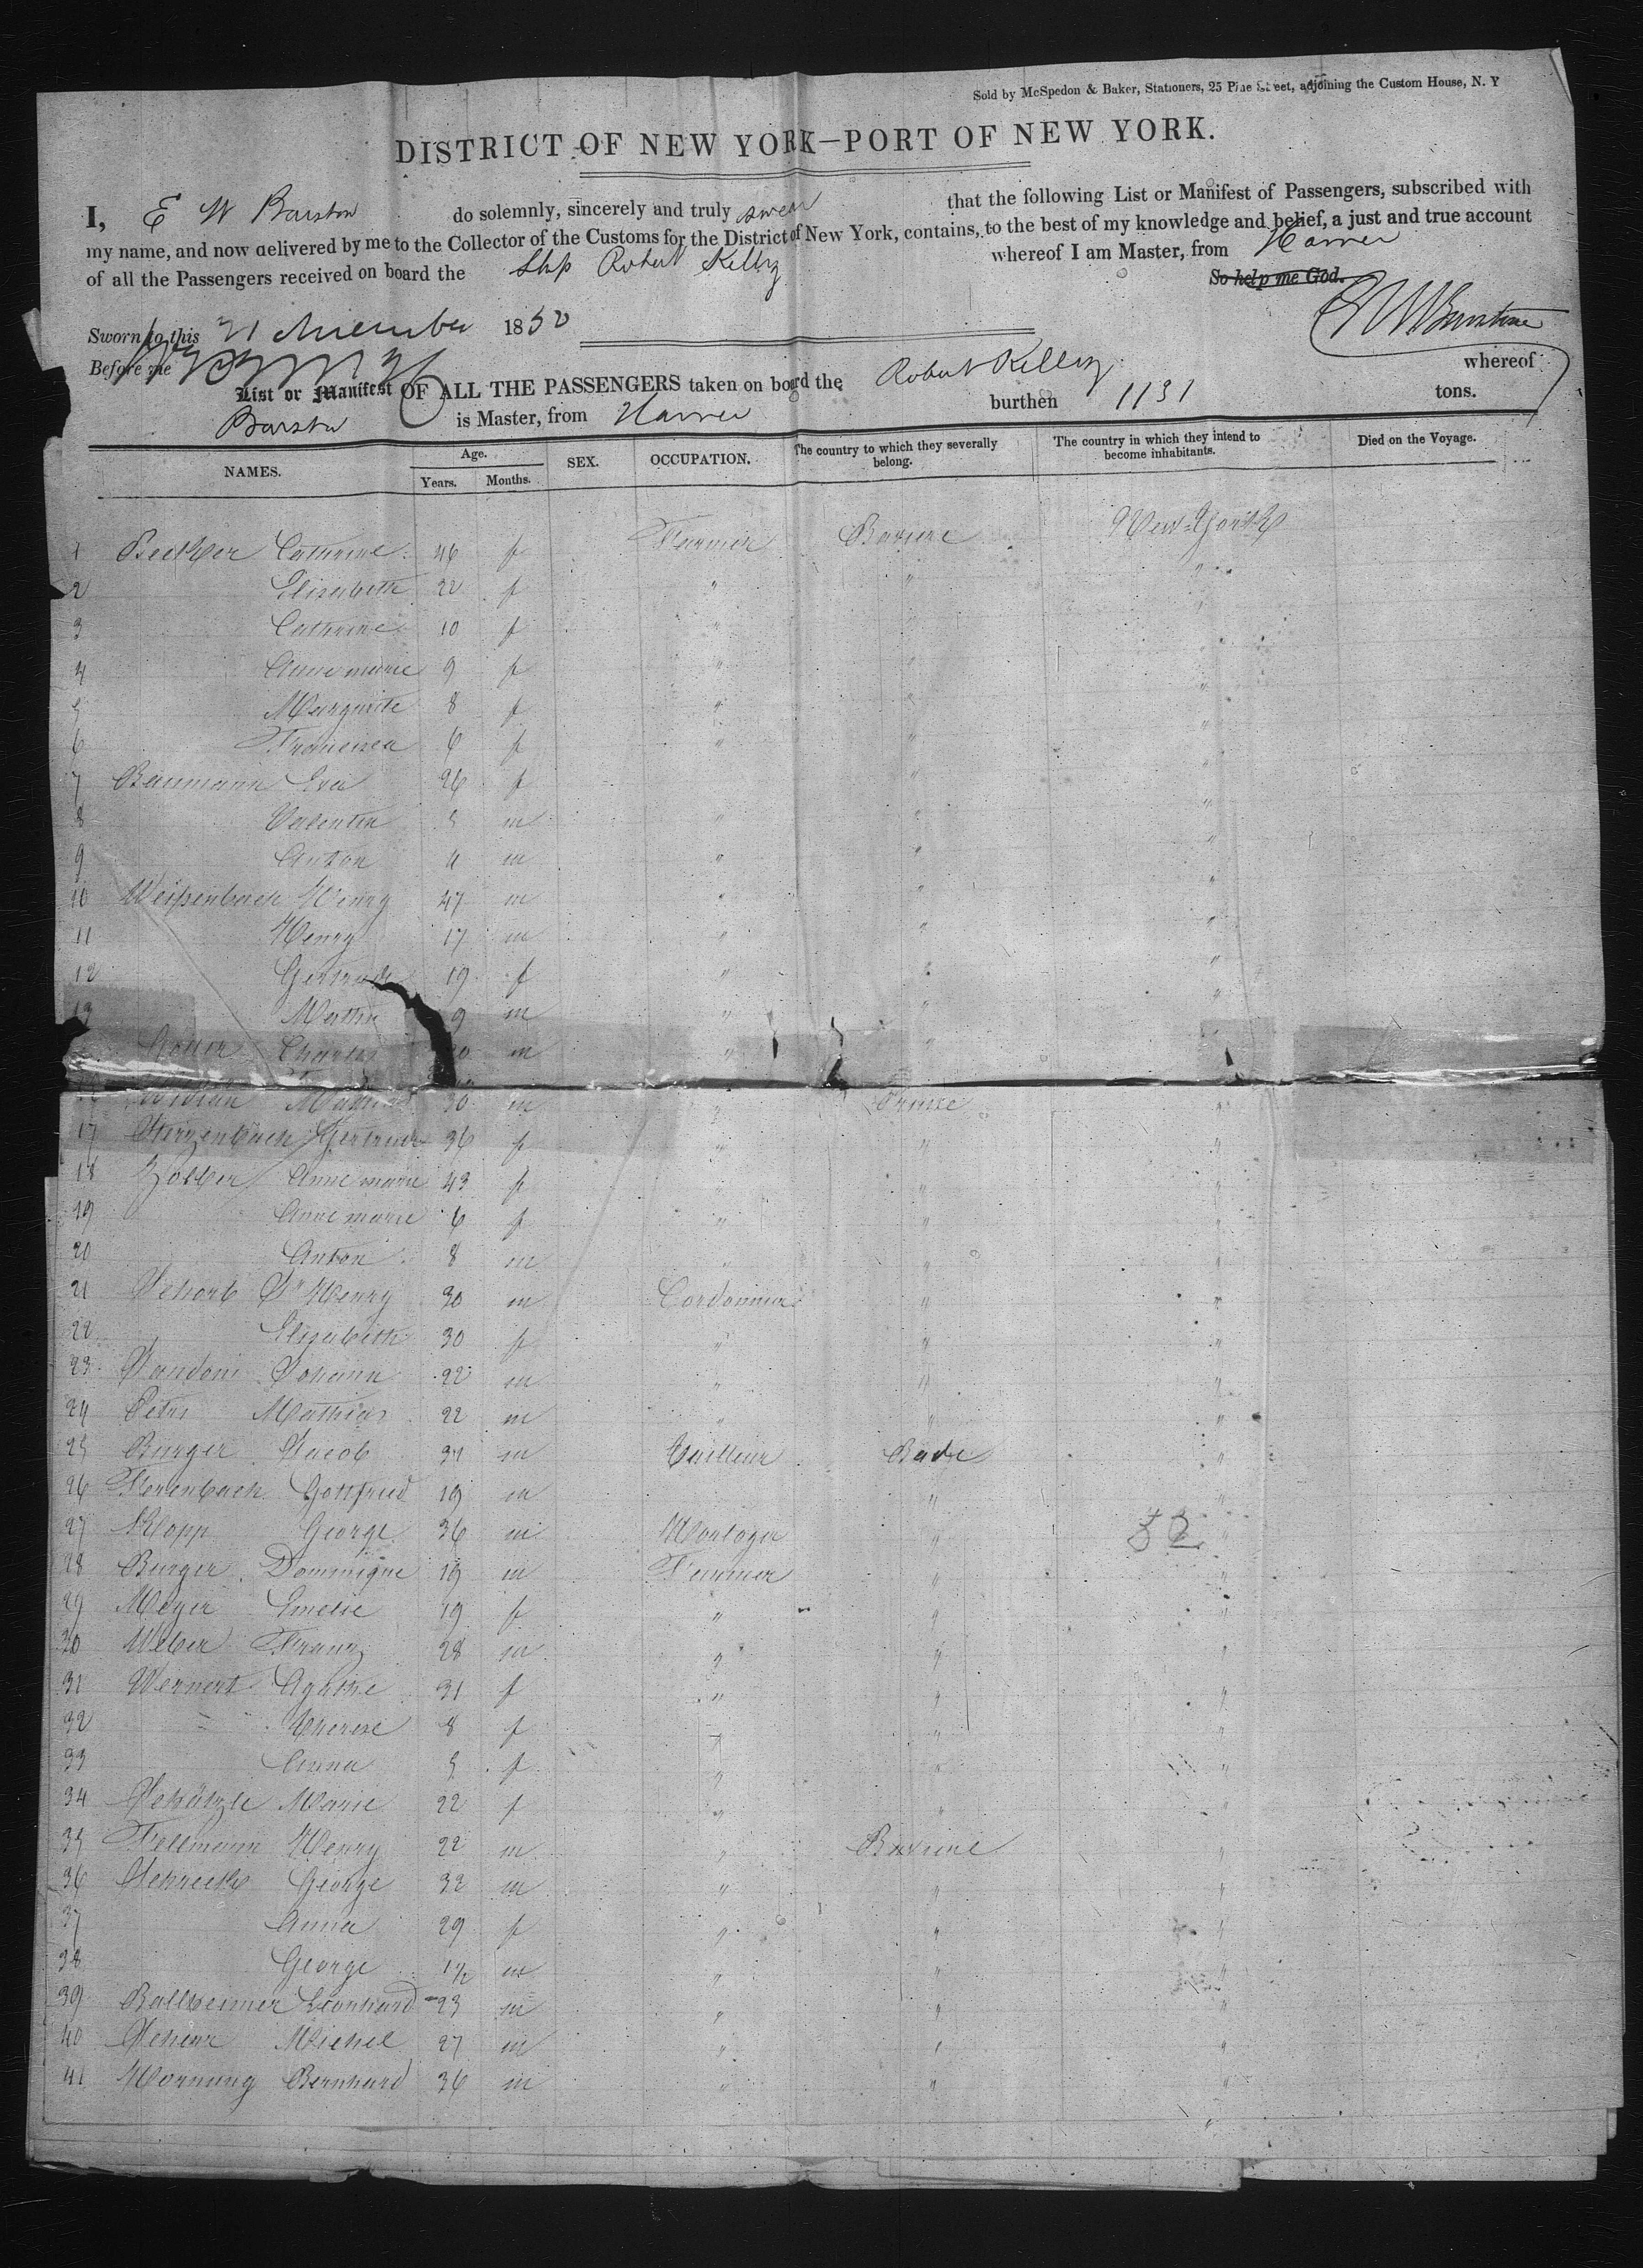 Sold by McSpedon & Baker, Stationers, 25 Pine Street, adjoining the Custom House, N. Y
DISTRICT OF NEW YORK—PORT OF NEW YORK.
I, E W Barstow do solemnly, sincerely and truly swear that the following List or Manifest of Passengers, subscribed with
my name, and now delivered by me to the Collector of the Customs for the District of New York, contains, to the best of my knowledge and belief, a just and true account
of all the Passengers received on board the Ship Robert Kelly whereof I am Master, from Havre
So help me God.
Sworn to this 21 1850
Before me
List or Manifest OF ALL THE PASSENGERS taken on board the Robert Kelly whereof
Barstow is Master, from Havre burthen 1131 tons.
NAMES. Age. Years. Months. SEX. OCCUPATION. The country to which they severally belong. The country in which they intend to become inhabitants. Died on the Voyage.
1 Becker Cathrine 46 f Farmer Baviere New-York
2 Elisabeth 22 f " " "
3 Cathrine 10 f " " "
4 Anne marie 9 f " " "
5 Marguerite 8 f " " "
6 Francisca 6 f " " "
7 Baumann Eva 26 f " "
8 Valentin 5 m " " "
9 Anton 4 m " " "
10 Weißenbach Henry 47 m " " "
11 Henry 17 m " " "
12 Gertrude 19 f " " "
13 Martin 9 m " " "
Charles m " "
30 m " "
17 Gertrude 36 f " " "
18 Anne marie 43 f " " "
19 Anne marie 6 f " " "
20 Anton 8 m " " "
21 Schorb Henry 30 m Cordonnier " "
22 Elisabeth 30 f " " "
23 Johann 22 m " " "
24 Petri Mathias 22 m " " "
25 Burger Jacob 37 m Tailleur Bade "
26 Ferenbach Gottfried 19 m " "
27 Klopp George 36 m Horloger " "
28 Burger Dominique 19 m Farmer " "
29 Meyer Emelie 19 f " " "
30 Weber Franz 28 m " " "
31 Wernert Agathe 31 f " " "
32 Therese 8 f " " "
33 Anna 5 f " " "
34 Schätzle Marie 22 f " " "
35 Fellmann Henry 22 m " Baviere "
36 Schreck George 32 m " " "
37 Anna 29 f " " "
38 George 1½ m " " "
39 Ballheimer Leonhard 23 m " " "
40 Michel 27 m " " "
41 Hornung Bernhard 36 m " " "